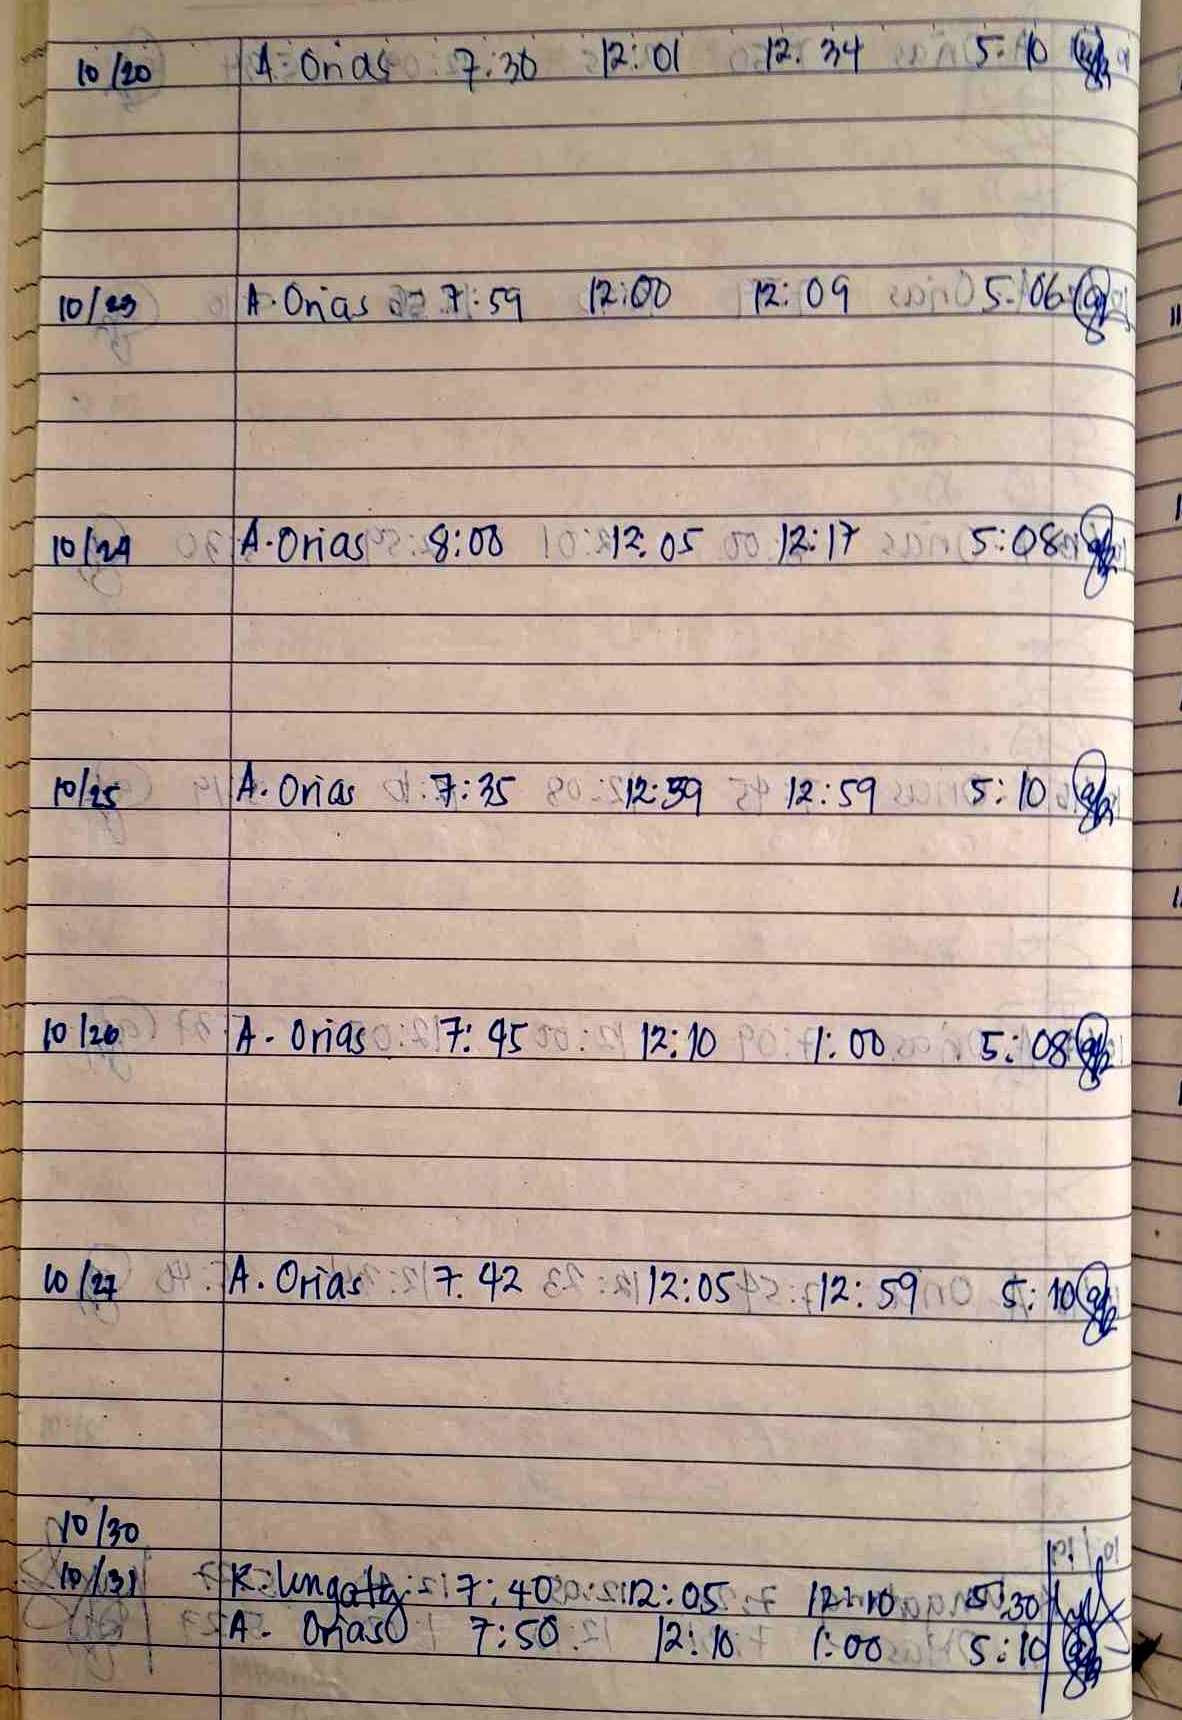 10/20 A. Orias 7:30 12:01 12:34 5:10
10/23 A. Orias 7:59 12:00 12:09 5:06
10/24 A. Orias 8:00 12:05 12:17 5:08
10/25 A. Orias 7:35 12:39 12:59 5:10
10/26 A. Orias 7:45 12:10 1:00 5:08
10/27 A. Orias 7:42 12:05 12:59 5:10
10/30
10/31 K. 7:40 12:05 12:10 5:30
A. Orias 7:50 12:10 1:00 5:10